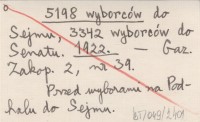 5198 wyborców do
Sejmu, 3342 wyborców do
Senatu. 1922. — Gaz.
Zakop. 2, nr 39.
Przed wyborami na Pod-
halu do Sejmu.